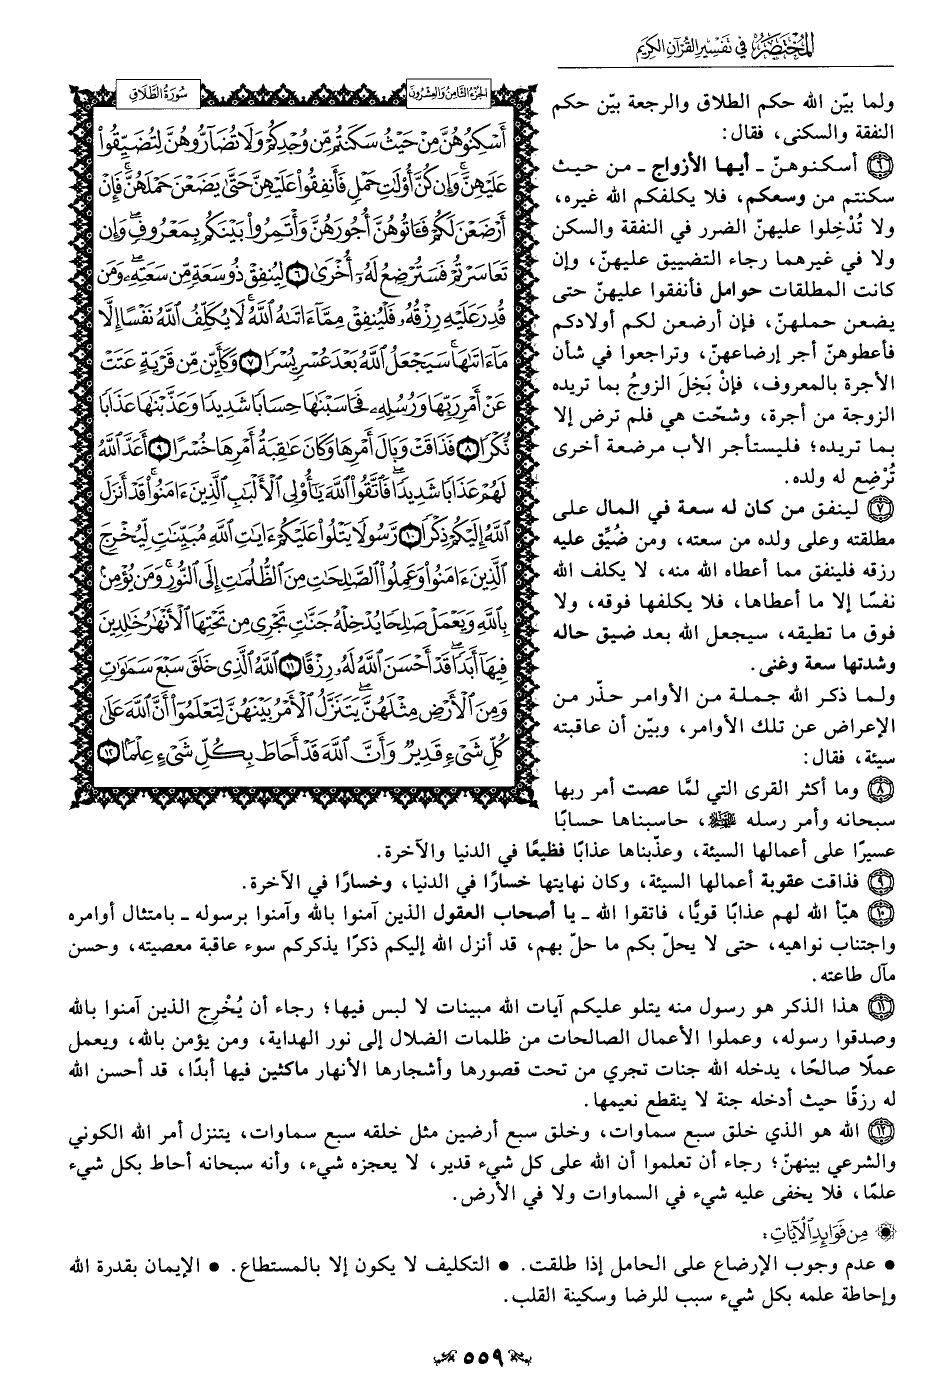 المختصر في تفسير القرآن الكريم
سورة الطلاق
الجزء الثامن والعشرون
أَسْكِنُوهُنَّ مِنْ حَيْثُ سَكَنتُم مِّن وُجْدِكُمْ وَلَا تُضَارُّوهُنَّ لِتُضَيِّقُوا۟
عَلَيْهِنَّ ۚ وَإِن كُنَّ أُو۟لَٰتِ حَمْلٍ فَأَنفِقُوا۟ عَلَيْهِنَّ حَتَّىٰ يَضَعْنَ حَمْلَهُنَّ ۚ فَإِنْ
أَرْضَعْنَ لَكُمْ فَـَٔاتُوهُنَّ أُجُورَهُنَّ ۖ وَأْتَمِرُوا۟ بَيْنَكُم بِمَعْرُوفٍ ۖ وَإِن
تَعَاسَرْتُمْ فَسَتُرْضِعُ لَهُۥٓ أُخْرَىٰ ٦ لِيُنفِقْ ذُو سَعَةٍ مِّن سَعَتِهِۦ ۖ وَمَن
قُدِرَ عَلَيْهِ رِزْقُهُۥ فَلْيُنفِقْ مِمَّآ ءَاتَىٰهُ ٱللَّهُ ۚ لَا يُكَلِّفُ ٱللَّهُ نَفْسًا إِلَّا
مَآ ءَاتَىٰهَا ۚ سَيَجْعَلُ ٱللَّهُ بَعْدَ عُسْرٍ يُسْرًا ٧ وَكَأَيِّن مِّن قَرْيَةٍ عَتَتْ
عَنْ أَمْرِ رَبِّهَا وَرُسُلِهِۦ فَحَاسَبْنَٰهَا حِسَابًا شَدِيدًا وَعَذَّبْنَٰهَا عَذَابًا
نُّكْرًا ٨ فَذَاقَتْ وَبَالَ أَمْرِهَا وَكَانَ عَٰقِبَةُ أَمْرِهَا خُسْرًا ٩ أَعَدَّ ٱللَّهُ
لَهُمْ عَذَابًا شَدِيدًا ۖ فَٱتَّقُوا۟ ٱللَّهَ يَٰٓأُو۟لِى ٱلْأَلْبَٰبِ ٱلَّذِينَ ءَامَنُوا۟ ۚ قَدْ أَنزَلَ
ٱللَّهُ إِلَيْكُمْ ذِكْرًا ١٠ رَّسُولًا يَتْلُوا۟ عَلَيْكُمْ ءَايَٰتِ ٱللَّهِ مُبَيِّنَٰتٍ لِّيُخْرِجَ
ٱلَّذِينَ ءَامَنُوا۟ وَعَمِلُوا۟ ٱلصَّٰلِحَٰتِ مِنَ ٱلظُّلُمَٰتِ إِلَى ٱلنُّورِ ۚ وَمَن يُؤْمِنۢ
بِٱللَّهِ وَيَعْمَلْ صَٰلِحًا يُدْخِلْهُ جَنَّٰتٍ تَجْرِى مِن تَحْتِهَا ٱلْأَنْهَٰرُ خَٰلِدِينَ
فِيهَآ أَبَدًا ۖ قَدْ أَحْسَنَ ٱللَّهُ لَهُۥ رِزْقًا ١١ ٱللَّهُ ٱلَّذِى خَلَقَ سَبْعَ سَمَٰوَٰتٍ
وَمِنَ ٱلْأَرْضِ مِثْلَهُنَّ يَتَنَزَّلُ ٱلْأَمْرُ بَيْنَهُنَّ لِتَعْلَمُوٓا۟ أَنَّ ٱللَّهَ عَلَىٰ
كُلِّ شَىْءٍ قَدِيرٌ وَأَنَّ ٱللَّهَ قَدْ أَحَاطَ بِكُلِّ شَىْءٍ عِلْمًۢا ١٢
ولما بيّن الله حكم الطلاق والرجعة بيّن حكم
النفقة والسكنى، فقال:
٦ أسكنوهنّ ـ أيها الأزواج ـ من حيث
سكنتم من وسعكم، فلا يكلفكم الله غيره،
ولا تُدْخِلوا عليهنّ الضرر في النفقة والسكن
ولا في غيرهما رجاء التضييق عليهنّ، وإن
كانت المطلقات حوامل فأنفقوا عليهنّ حتى
يضعن حملهنّ، فإن أرضعن لكم أولادكم
فأعطوهنّ أجر إرضاعهنّ، وتراجعوا في شأن
الأجرة بالمعروف، فإنْ بَخِلَ الزوجُ بما تريده
الزوجة من أجرة، وشحّت هي فلم ترض إلا
بما تريده؛ فليستأجر الأب مرضعة أخرى
تُرْضِع له ولده.
٧ لينفق من كان له سعة في المال على
مطلقته وعلى ولده من سعته، ومن ضُيِّق عليه
رزقه فلينفق مما أعطاه الله منه، لا يكلف الله
نفسًا إلا ما أعطاها، فلا يكلفها فوقه، ولا
فوق ما تطيقه، سيجعل الله بعد ضيق حاله
وشدتها سعة وغنى.
ولما ذكر الله جملة من الأوامر حذّر من
الإعراض عن تلك الأوامر، وبيّن أن عاقبته
سيئة، فقال:
٨ وما أكثر القرى التي لمَّا عصت أمر ربها
سبحانه وأمر رسله ﷺ، حاسبناها حسابًا
عسيرًا على أعمالها السيئة، وعذّبناها عذابًا فظيعًا في الدنيا والآخرة.
٩ فذاقت عقوبة أعمالها السيئة، وكان نهايتها خسارًا في الدنيا، وخسارًا في الآخرة.
١٠ هيّأ الله لهم عذابًا قويًّا، فاتقوا الله ـ يا أصحاب العقول الذين آمنوا بالله وآمنوا برسوله ـ بامتثال أوامره
واجتناب نواهيه، حتى لا يحلّ بكم ما حلّ بهم، قد أنزل الله إليكم ذكرًا يذكركم سوء عاقبة معصيته، وحسن
مآل طاعته.
١١ هذا الذكر هو رسول منه يتلو عليكم آيات الله مبينات لا لبس فيها؛ رجاء أن يُخْرِج الذين آمنوا بالله
وصدقوا رسوله، وعملوا الأعمال الصالحات من ظلمات الضلال إلى نور الهداية، ومن يؤمن بالله، ويعمل
عملًا صالحًا، يدخله الله جنات تجري من تحت قصورها وأشجارها الأنهار ماكثين فيها أبدًا، قد أحسن الله
له رزقًا حيث أدخله جنة لا ينقطع نعيمها.
١٢ الله هو الذي خلق سبع سماوات، وخلق سبع أرضين مثل خلقه سبع سماوات، يتنزل أمر الله الكوني
والشرعي بينهنّ؛ رجاء أن تعلموا أن الله على كل شيء قدير، لا يعجزه شيء، وأنه سبحانه أحاط بكل شيء
علمًا، فلا يخفى عليه شيء في السماوات ولا في الأرض.
من فوائد الآيات:
• عدم وجوب الإرضاع على الحامل إذا طلقت. • التكليف لا يكون إلا بالمستطاع. • الإيمان بقدرة الله
وإحاطة علمه بكل شيء سبب للرضا وسكينة القلب.
٥٥٩